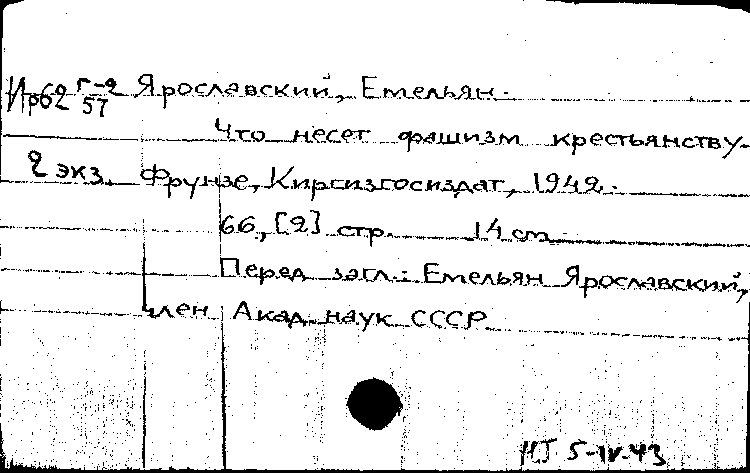 Ир62 г-2/57 Ярославский, Емельян.
Что несет фашизм крестьянству.
2 экз. Фрунзе, Киргизгосиздат, 1942.
66, [2] стр. 14 см
Перед загл.: Емельян Ярославский,
член Акад. наук СССР
НТ 5-IV-43